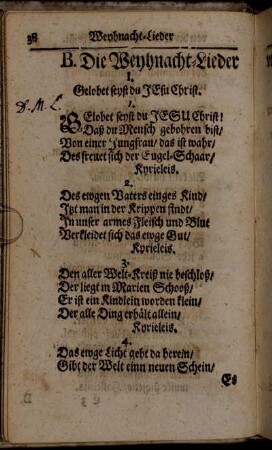 38 Weyhnacht-Lieder
B. Die Weyhnacht-Lieder
I.
Gelobet seyst du JEsu Christ.
D. M. L.
1.
GElobet seyst du JESU Christ!
Daß du Mensch gebohren bist/
Von einer Jungfrau/ das ist wahr/
Des freuet sich der Engel-Schaar/
Kyrieleis.
2.
Des ewgen Vaters einges Kind/
Itzt man in der Krippen findt/
In unser armes Fleisch und Blut
Verkleidet sich das ewge Gut/
Kyrieleis.
3.
Den aller Welt-Kreiß nie beschloß/
Der liegt in Marien Schooß/
Er ist ein Kindlein worden klein/
Der alle Ding erhält allein/
Kyrieleis.
4.
Das ewge Licht geht da herein/
Gibt der Welt einn neuen Schein/
Es